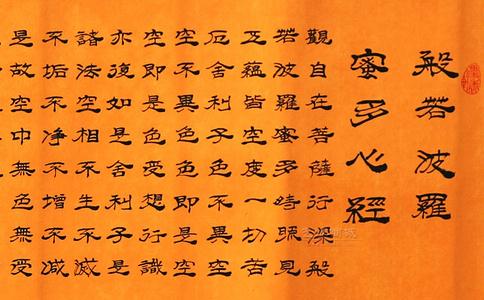 般若波羅
蜜多心經
觀自在菩薩行深般
若波羅蜜多時照見
五蘊皆空度一切苦
厄舍利子色不異空
空不異色色即是空
空即是色受想行識
亦復如是舍利子是
諸法空相不生不滅
不垢不净不增不减
是故空中無色無受